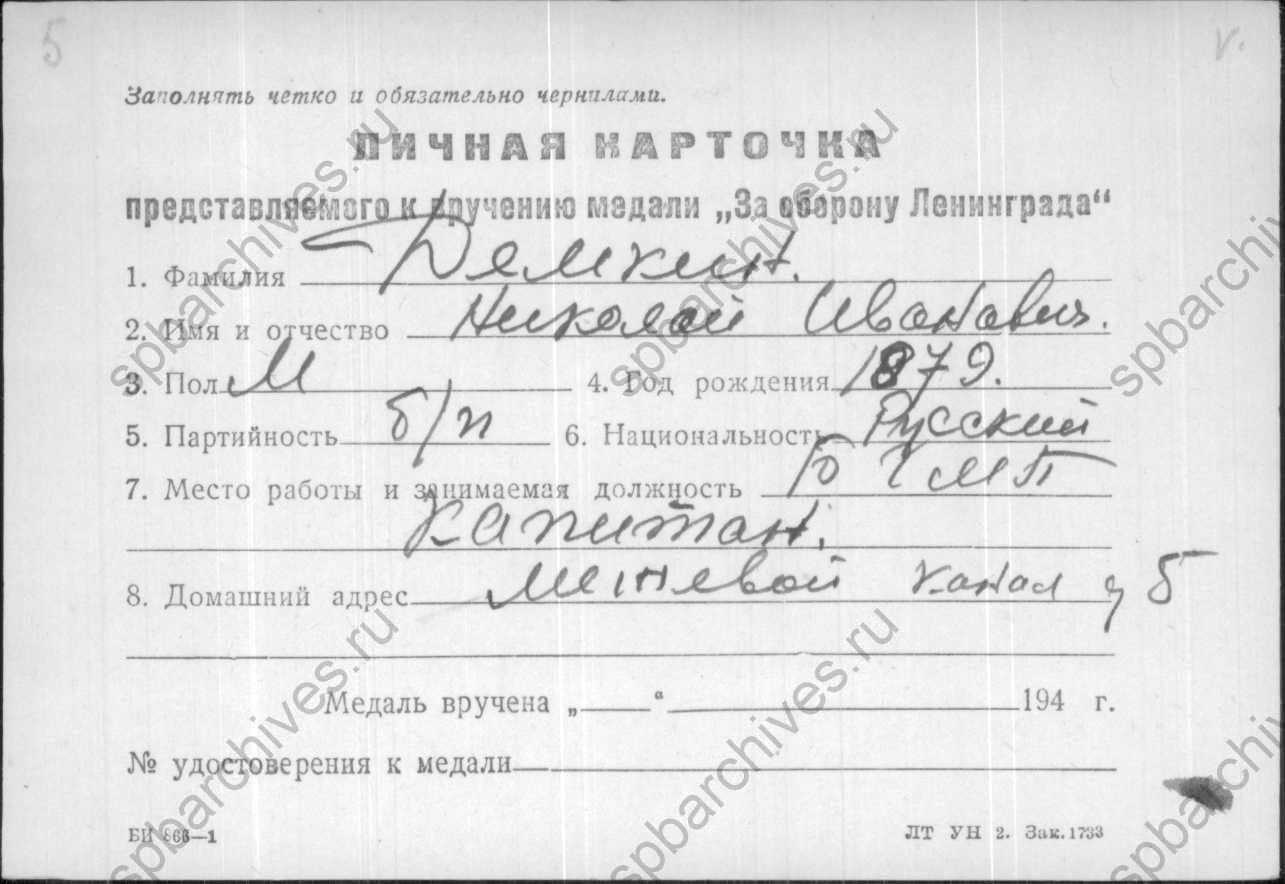 5 v.
Заполнять четко и обязательно чернилами.
ЛИЧНАЯ КАРТОЧКА
представляемого к вручению медали „За оборону Ленинграда“
1. Фамилия Демкин.
2. Имя и отчество Николай Иванович.
3. Пол М 4. Год рождения 1879.
5. Партийность б/п 6. Национальность Русский
7. Место работы и занимаемая должность БГМП
Капитан.
8. Домашний адрес канал д 5
Медаль вручена „ “ 194 г.
№ удостоверения к медали
БИ 866—1 ЛТ УН 2. Зак. 1733
spbarchives.ru
spbarchives.ru
spbarchives.ru
spbarchives.ru
spbarchives.ru
spbarchives.ru